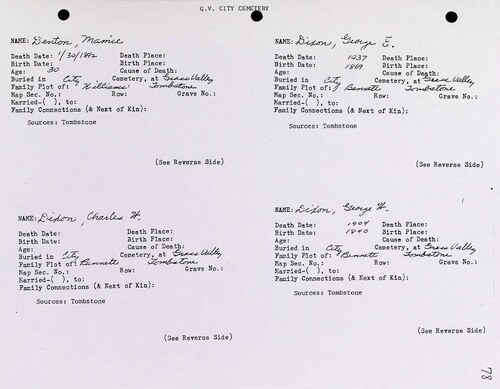 G.V. CITY CEMETERY
NAME: Denton, Mamie
Death Date: 1/30/1892 Death Place:
Birth Date: Birth Place:
Age: 30 Cause of Death:
Buried in City Cemetery, at Grass Valley
Family Plot of: Williams Tombstone
Map Sec. No.: Row: Grave No.:
Married-( ), to:
Family Connections (& Next of Kin):
Sources: Tombstone
(See Reverse Side)
NAME: Dixon, George E.
Death Date: 1937 Death Place:
Birth Date: 1869 Birth Place:
Age: Cause of Death:
Buried in City Cemetery, at Grass Valley
Family Plot of: J Bennett Tombstone
Map Sec. No.: Row: Grave No.:
Married-( ), to:
Family Connections (& Next of Kin):
Sources: Tombstone
(See Reverse Side)
NAME: Dixon, Charles W.
Death Date: Death Place:
Birth Date: Birth Place:
Age: Cause of Death:
Buried in City Cemetery, at Grass Valley
Family Plot of: Bennett Tombstone
Map Sec. No.: Row: Grave No.:
Married-( ), to:
Family Connections (& Next of Kin):
Sources: Tombstone
(See Reverse Side)
NAME: Dixon, George W.
Death Date: 1904 Death Place:
Birth Date: 1840 Birth Place:
Age: Cause of Death:
Buried in City Cemetery, at Grass Valley
Family Plot of: Bennett Tombstone
Map Sec. No.: Row: Grave No.:
Married-( ), to:
Family Connections (& Next of Kin):
Sources: Tombstone
(See Reverse Side)
78